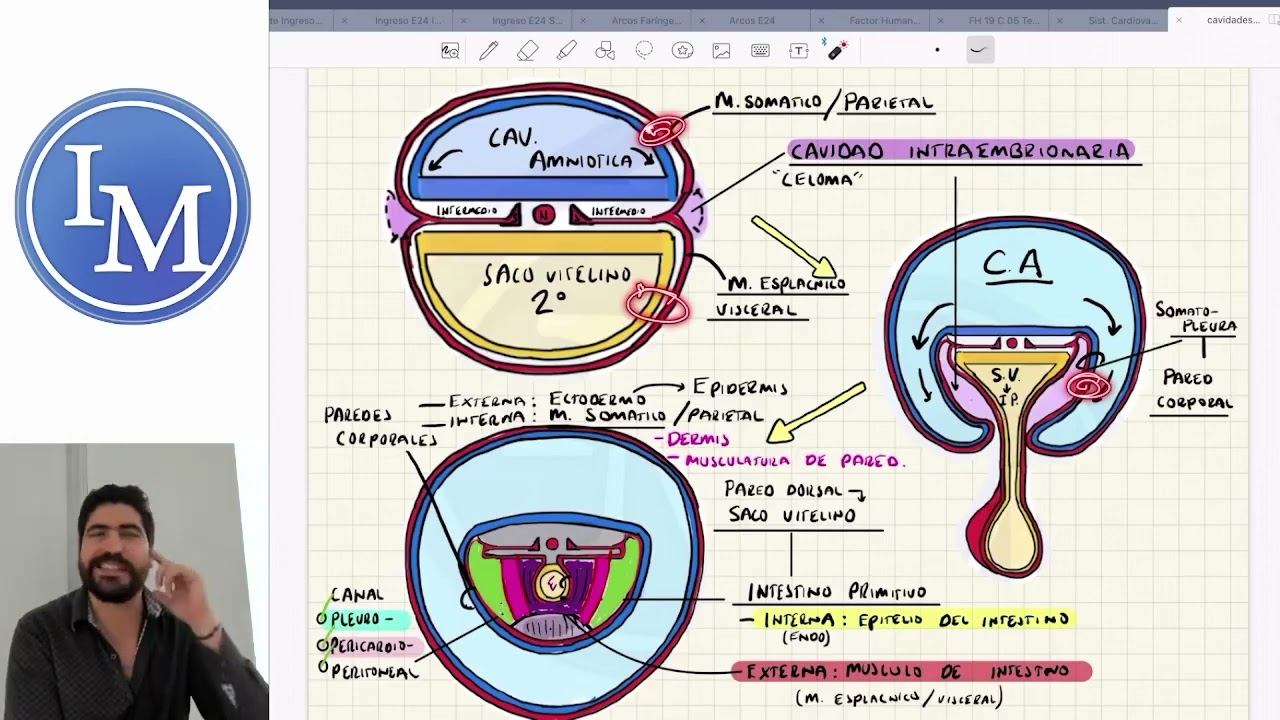 Ingreso...
Ingreso E24 I...
Ingreso E24 S...
Arcos Farínge...
Arcos E24
Factor Human...
FH 19 C 05 Te...
Sist. Cardiova...
cavidades...
IM
T
CAV.
AMNIOTICA
INTERMEDIO
N
INTERMEDIO
SACO VITELINO
2°
M. SOMATICO / PARIETAL
CAVIDAD INTRAEMBRIONARIA
"CELOMA"
M. ESPLACNICO
VISCERAL
C.A
S.V.
I P.
SOMATO-
PLEURA
PARED
CORPORAL
PAREDES
CORPORALES
- EXTERNA: ECTODERMO → EPIDERMIS
- INTERNA: M. SOMATICO / PARIETAL
- DERMIS
- MUSCULATURA DE PARED.
PARED DORSAL
SACO VITELINO
INTESTINO PRIMITIVO
- INTERNA: EPITELIO DEL INTESTINO
(ENDO)
EXTERNA: MUSCULO DE INTESTINO
(M. ESPLACNICO/VISCERAL)
CANAL
PLEURO-
PERICARDIO-
PERITONEAL